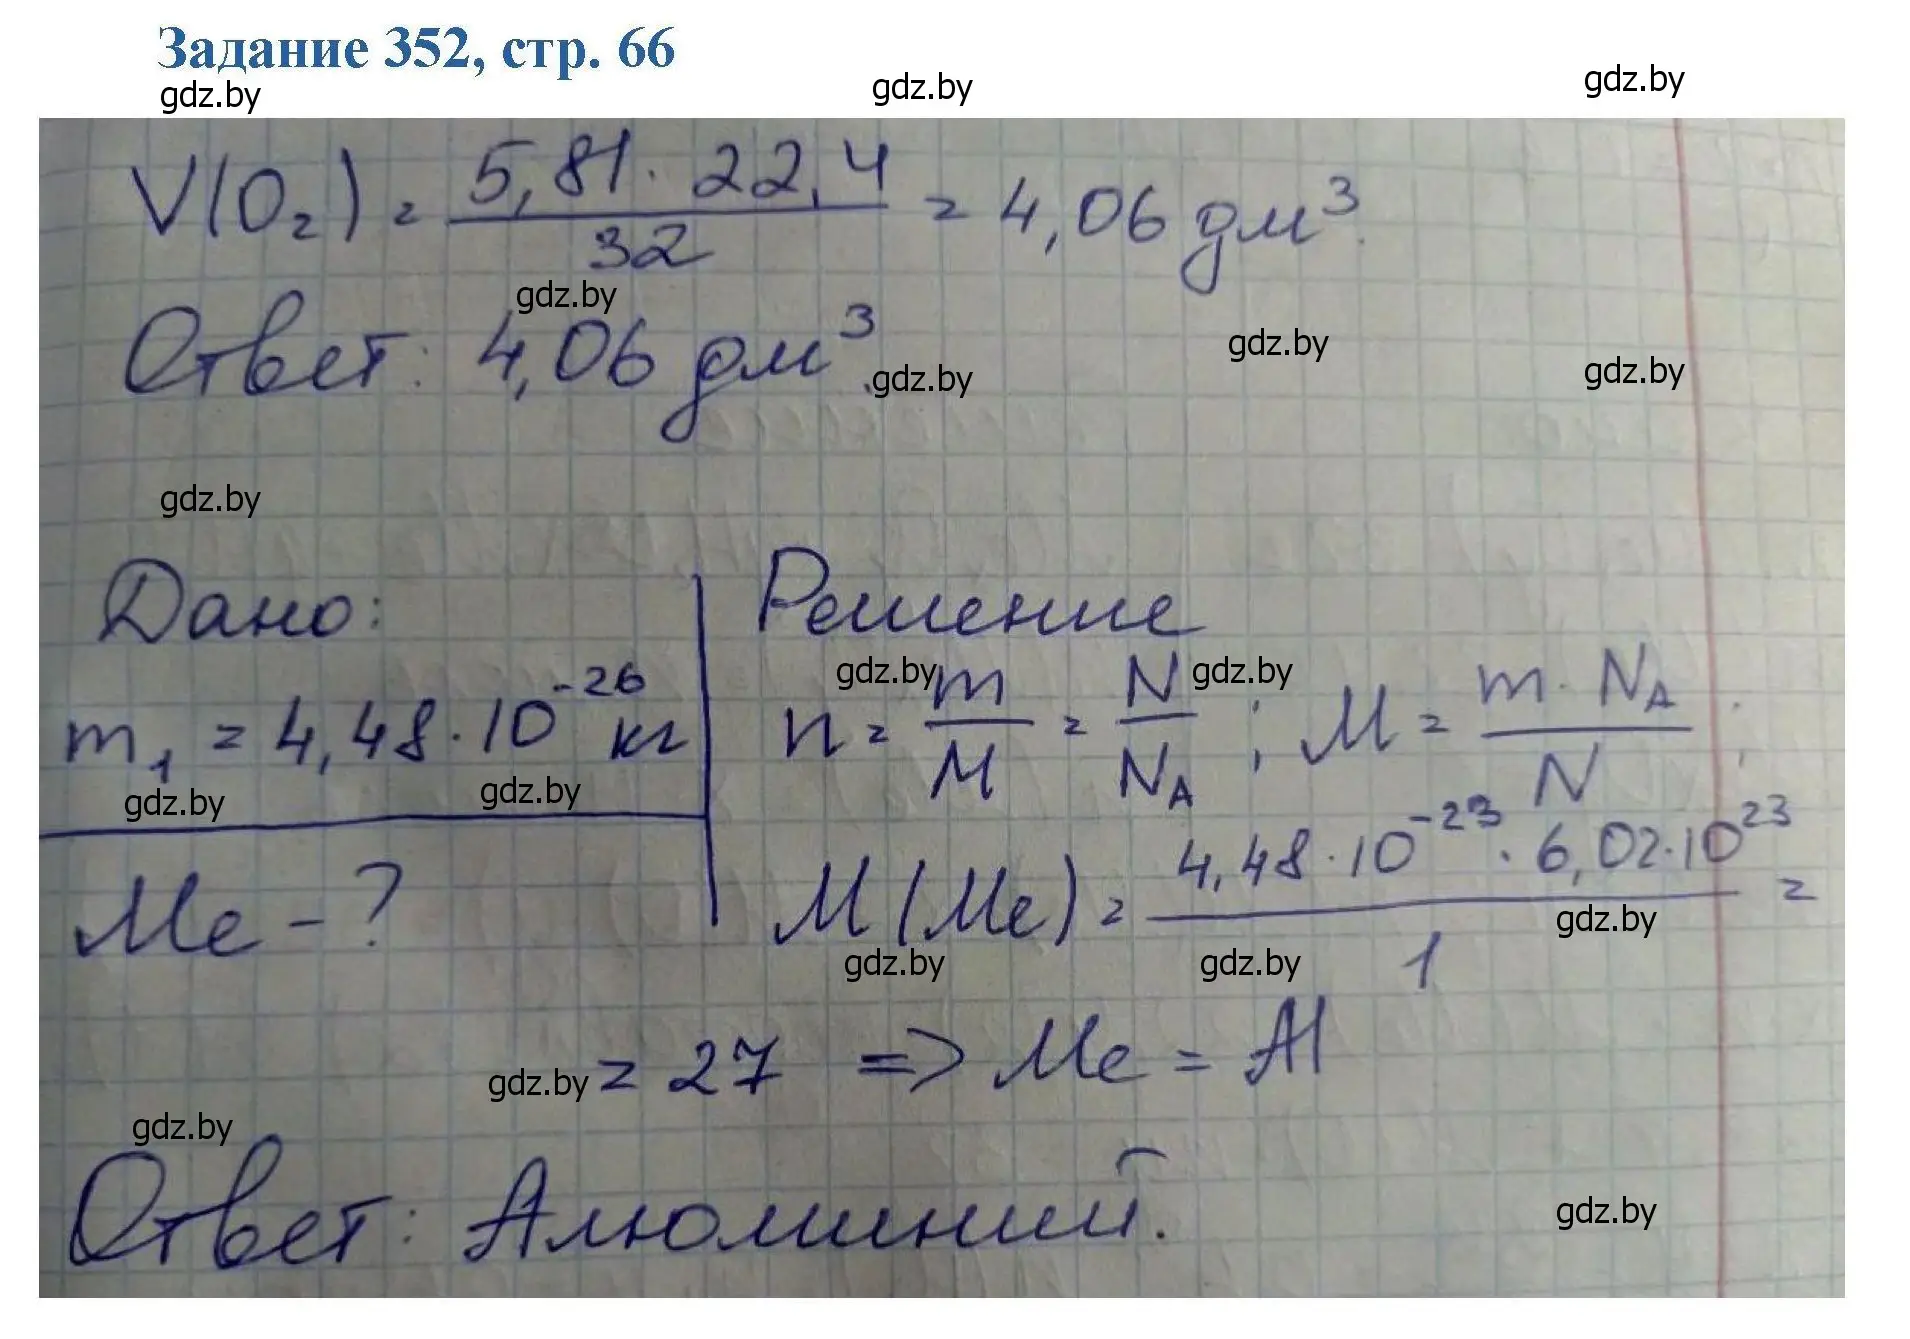 Задание 352, стр. 66
gdz.by gdz.by gdz.by
V(O₂) = (5,81 · 22,4)/32 = 4,06 дм³.
gdz.by
Ответ: 4,06 дм³.
gdz.by gdz.by gdz.by
gdz.by
Дано:
m₁ = 4,48 · 10⁻²⁶ кг
gdz.by gdz.by
Ме - ?
Решение
gdz.by gdz.by
n = m/M = N/N_A ; M = (m · N_A)/N ;
M(Me) = (4,48 · 10⁻²³ · 6,02 · 10²³)/1 =
gdz.by gdz.by gdz.by
= 27 => Me = Al
gdz.by
gdz.by
Ответ: Алюминий.
gdz.by